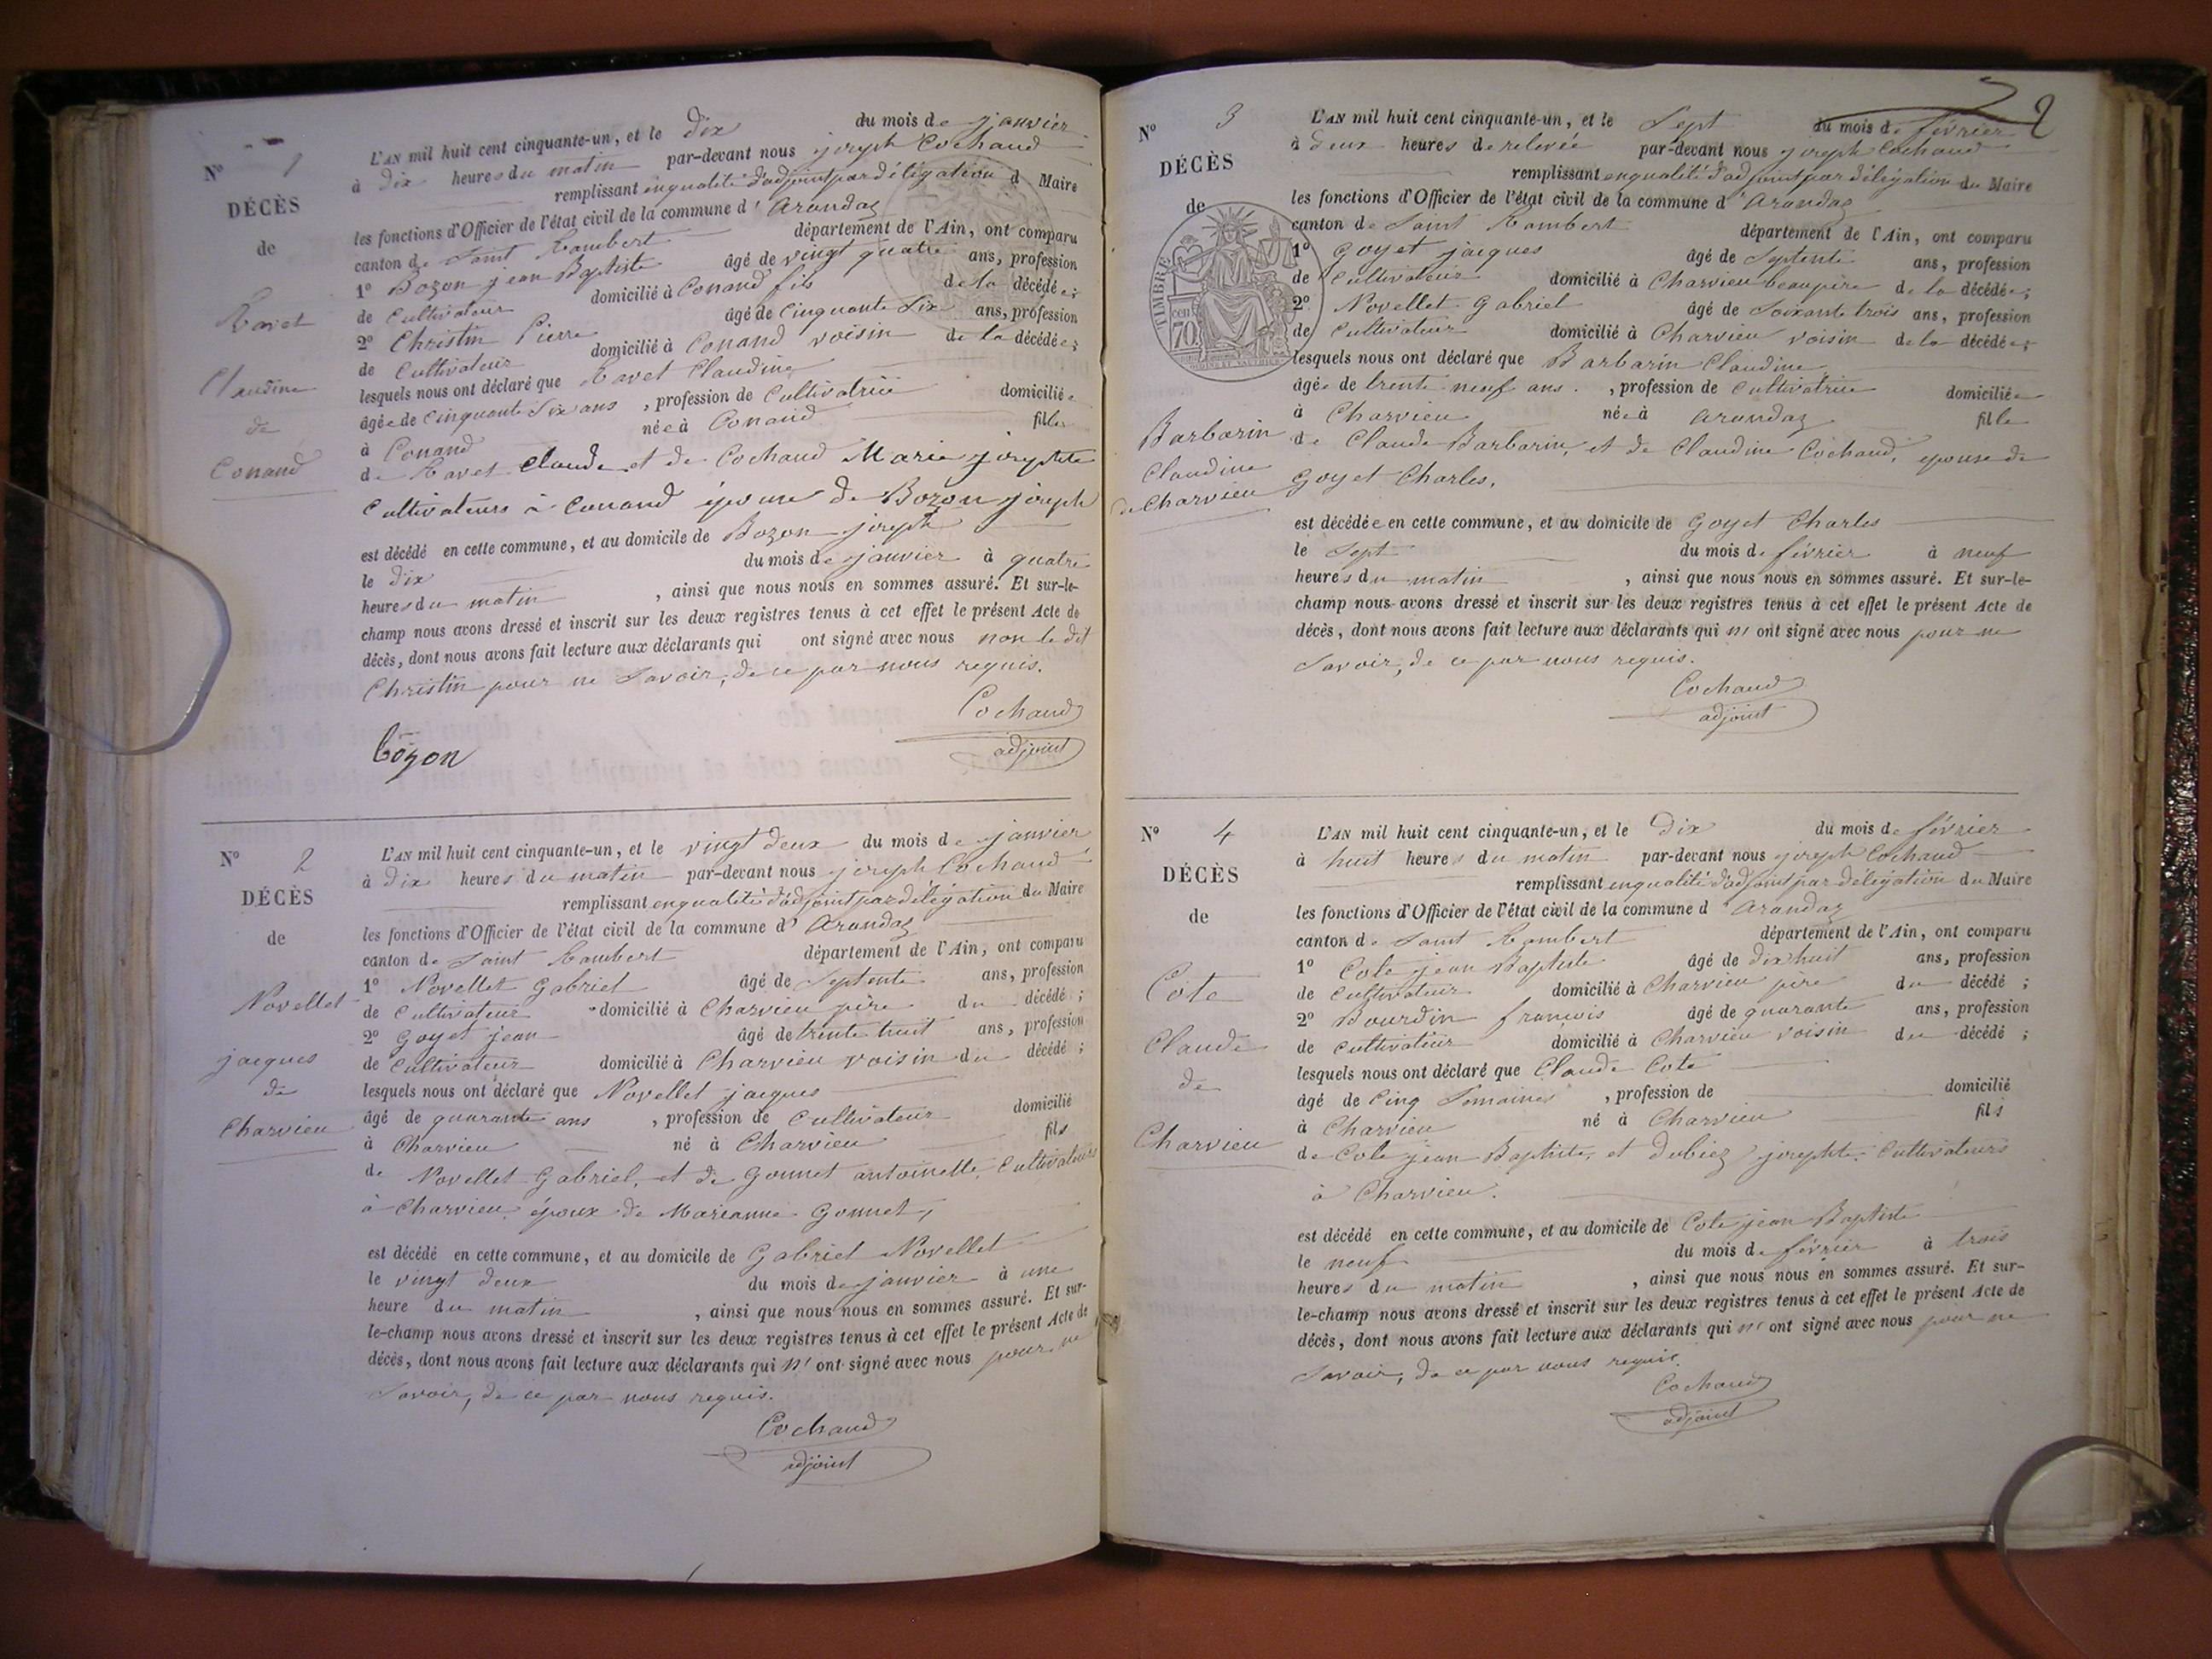 N° 1
DÉCÈS
de
Ravet
Claudine
de
Conand
L'AN mil huit cent cinquante-un, et le dix du mois de janvier
à dix heures du matin par-devant nous joseph Cochaud
remplissant en qualité d'adjoint par délégation d Maire
les fonctions d'Officier de l'état civil de la commune d' Arandaz
canton de Saint Rambert département de l'Ain, ont comparu
1° Bozon jean Baptiste âgé de vingt quatre ans, profession
de Cultivateur domicilié à Conand fils de la décédée;
2° Christin Pierre âgé de Cinquante Six ans, profession
de Cultivateur domicilié à Conand voisin de la décédée;
lesquels nous ont déclaré que Ravet Claudine
âgée de Cinquante Six ans, profession de Cultivatrice domiciliée
à Conand née à Conand fille
de Ravet Claude et de Cochaud Marie josephte
Cultivateurs à Conand épouse de Bozon joseph
est décédé en cette commune, et au domicile de Bozon joseph
le dix du mois de janvier à quatre
heures du matin, ainsi que nous nous en sommes assuré. Et sur-le-
champ nous avons dressé et inscrit sur les deux registres tenus à cet effet le présent Acte de
décès, dont nous avons fait lecture aux déclarants qui ont signé avec nous non le dit
Christin pour ne Savoir, de ce par nous requis.
Cochaud
adjoint
bozon
N° 2
DÉCÈS
de
Novellet
jacques
de
Charvieu
L'AN mil huit cent cinquante-un, et le vingt deux du mois de janvier
à dix heures du matin par-devant nous joseph Cochaud
remplissant en qualité d'adjoint par délégation du Maire
les fonctions d'Officier de l'état civil de la commune d' Arandaz
canton de Saint Rambert département de l'Ain, ont comparu
1° Novellet Gabriel âgé de Septente ans, profession
de Cultivateur domicilié à Charvieu père du décédé;
2° Goyet jean âgé de trente huit ans, profession
de Cultivateur domicilié à Charvieu voisin du décédé;
lesquels nous ont déclaré que Novellet jacques
âgé de quarante ans, profession de Cultivateur domicilié
à Charvieu né à Charvieu fils
de Novellet Gabriel, et de Gonnet antoinette, Cultivateurs
à Charvieu, époux de Marianne Gonnet,
est décédé en cette commune, et au domicile de Gabriel Novellet
le vingt deux du mois de janvier à une
heure du matin, ainsi que nous nous en sommes assuré. Et sur-
le-champ nous avons dressé et inscrit sur les deux registres tenus à cet effet le présent Acte de
décès, dont nous avons fait lecture aux déclarants qui n' ont signé avec nous pour ne
Savoir, de ce par nous requis.
Cochaud
adjoint
2
N° 3
DÉCÈS
de
TIMBRE
70 cent
Barbarin
Claudine
de Charvieu
L'AN mil huit cent cinquante-un, et le Sept du mois de février
à deux heures de relevée par-devant nous joseph Cochaud
remplissant en qualité d'adjoint par délégation du Maire
les fonctions d'Officier de l'état civil de la commune d' Arandaz
canton de Saint Rambert département de l'Ain, ont comparu
1° Goyet jacques âgé de Septente ans, profession
de Cultivateur domicilié à Charvieu beaupère de la décédée;
2° Novellet Gabriel âgé de Soixante trois ans, profession
de Cultivateur domicilié à Charvieu voisin de la décédée;
lesquels nous ont déclaré que Barbarin Claudine
âgée de trente neuf ans., profession de Cultivatrice domiciliée
à Charvieu née à Arandaz fille
de Claude Barbarin, et de Claudine Cochaud, épouse de
Goyet Charles,
est décédée en cette commune, et au domicile de Goyet Charles
le Sept du mois de février à neuf
heures du matin, ainsi que nous nous en sommes assuré. Et sur-le-
champ nous avons dressé et inscrit sur les deux registres tenus à cet effet le présent Acte de
décès, dont nous avons fait lecture aux déclarants qui n' ont signé avec nous pour ne
Savoir, de ce par nous requis.
Cochaud
adjoint
N° 4
DÉCÈS
de
Cote
Claude
de
Charvieu
L'AN mil huit cent cinquante-un, et le Dix du mois de février
à huit heures du matin par-devant nous joseph Cochaud
remplissant en qualité d'adjoint par délégation du Maire
les fonctions d'Officier de l'état civil de la commune d' Arandaz
canton de Saint Rambert département de l'Ain, ont comparu
1° Cote jean Baptiste âgé de dix huit ans, profession
de Cultivateur domicilié à Charvieu père du décédé;
2° Bourdin françois âgé de quarante ans, profession
de Cultivateur domicilié à Charvieu voisin du décédé;
lesquels nous ont déclaré que Claude Cote
âgé de Cinq Semaines, profession de domicilié
à Charvieu né à Charvieu fils
de Cote jean Baptiste, et Dubiez josephte Cultivateurs
à Charvieu.
est décédé en cette commune, et au domicile de Cote jean Baptiste
le neuf du mois de février à trois
heures du matin, ainsi que nous nous en sommes assuré. Et sur-
le-champ nous avons dressé et inscrit sur les deux registres tenus à cet effet le présent Acte de
décès, dont nous avons fait lecture aux déclarants qui n' ont signé avec nous pour ne
Savoir, de ce par nous requis.
Cochaud
adjoint